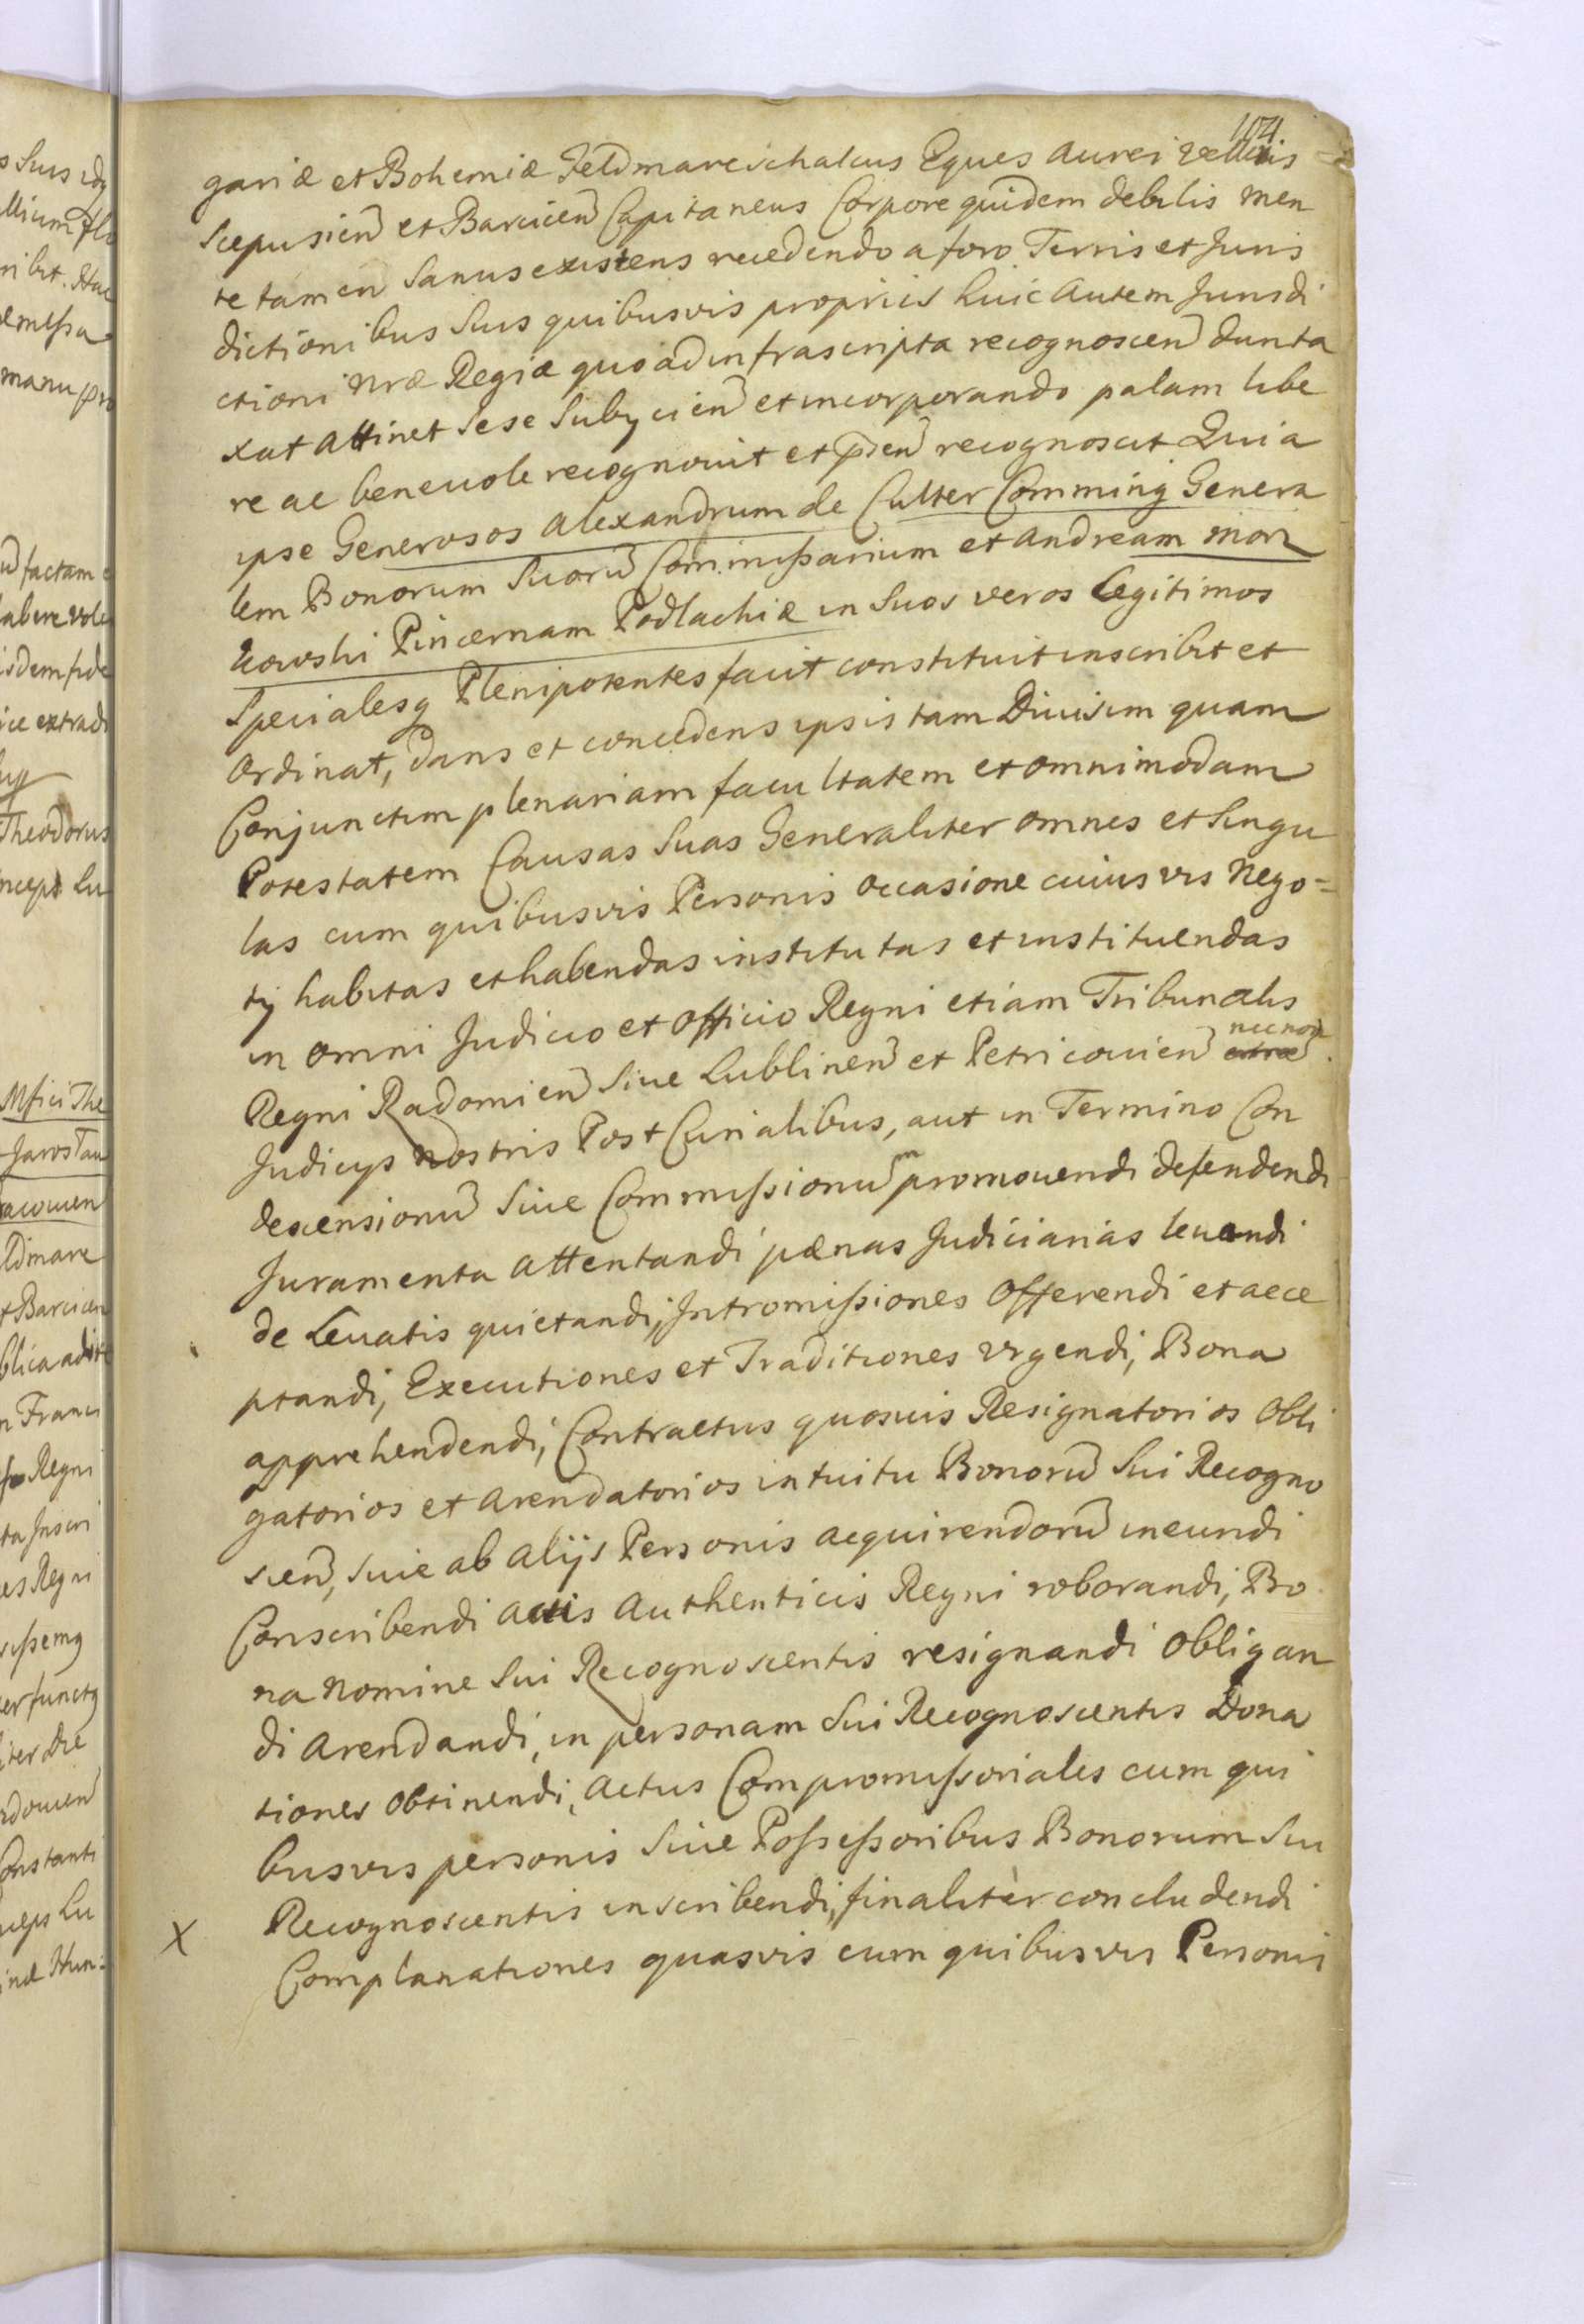 104
gariæ et Bohemiæ Feldmareschalcus Eques Aurei Velleris
Scepusien̄ et Barcicen̄ Capitaneus Corpore quidem debilis men
te tamen Sanus existens recedendo a foro Terris et Juris
dictionibus Suis quibusvis proprijs huic Autem Jurisdi
ctioni Nræ Regiæ quoad infrascripta recognoscen̄ dunta
xat Attinet sese Subijcien̄ et incorporando palam libe
re ac beneuole recognouit et p̄sen̄ recognoscit Quia
ipse Generosos Alexandrum de Culter Comming Genera
lem Bonorum Suorū Commissarium et Andream Mor
kowski Pincernam Podlachiæ in Suos veros Legitimos
Specialesq Plenipotentes facit constituit inscribit et
Ordinat, Dans et concedens ipsis tam Diuisim quam
Conjunctim plenariam facultatem et omnimodam
Potestatem Causas Suas Generaliter omnes et Singu
las cum quibusvis Personis Occasione cuiusvis Nego=
tij habitas et habendas institutas et instituendas
in omni Judicio et Officio Regni etiam Tribunalis
Regni Radomien̄ Siue Lublinen̄ et Petricouien̄ necnon
Judicijs nostris Post Curialibus, aut in Termino Con
descensionū Siue Commissionum promouendi defendendi
Juramenta Attentandi pænas Judiciarias leuandi
de Leuatis quietandi, Intromissiones Offerendi et acce
ptandi, Executiones et Traditiones vrgendi, Bona
apprehendendi, Contractus quosvis Resignatorios Obli
gatorios et Arendatorios intuitu Bonorū Sui Recogno
scen̄, siue ab Alijs Personis acquirendorū ineundi
Conscribendi Actis Authenticis Regni roborandi, Bo
na Nomine Sui Recognoscentis resignandi Obligan
di Arendandi, in personam Sui Recognoscentis Dona
tiones Obtinendi, Actus Compromissoriales cum qui
busvis personis Siue Possessoribus Bonorum Sui
Recognoscentis inscribendi, finaliter concludendi
X
Complanationes quasvis cum quibusvis Personis